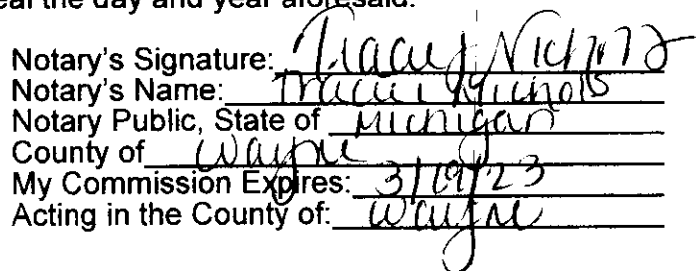 eal the day and year aforesaid.
Notary's Signature: Tracy Nichols
Notary's Name: Nichols
Notary Public, State of Michigan
County of Wayne
My Commission Expires:
Acting in the County of: Wayne